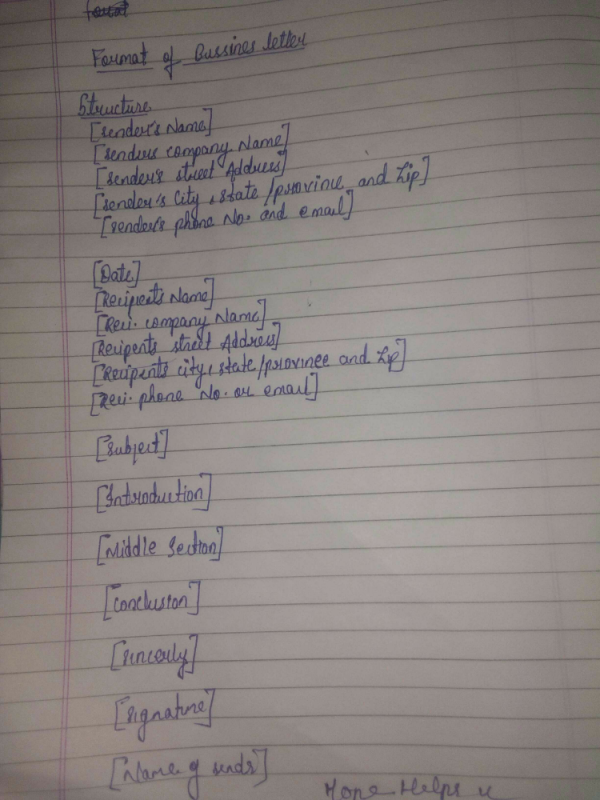 Format of Bussines letter
Structure
[Sender's Name]
[senders company Name]
[sender's street Address]
[sender's City, state/province and Zip]
[sender's phone No. and email]
[Date]
[Recipients Name]
[Reci. company Name]
Recipents street Address]
[Recipents city, state/province and Zip]
[Reci. phone No. or email]
[Subject]
[Introduction]
[Middle Section]
[Conclusion]
[Sincerly]
[Signature]
[Name of sendr]
Hope Helps u